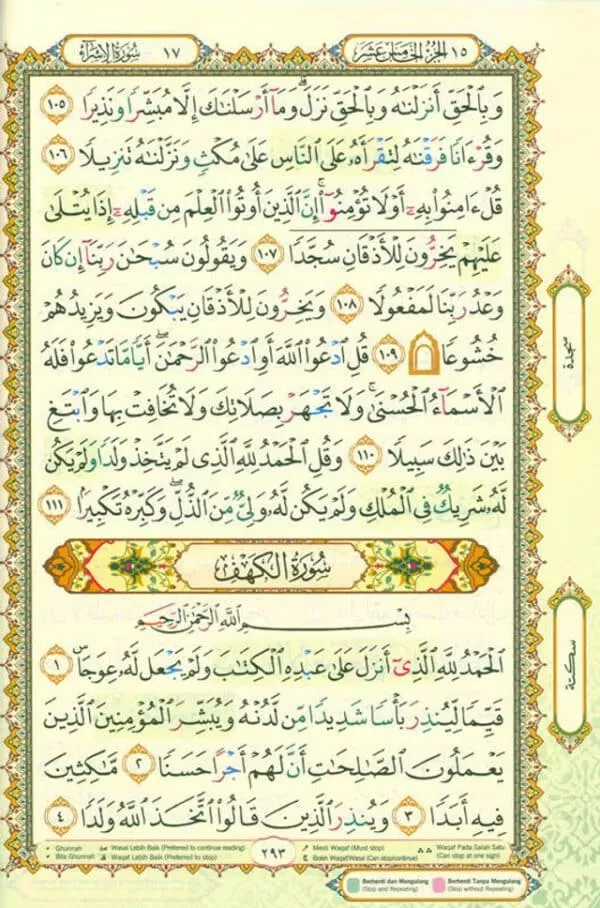 الجزء الخامس عشر ١٥
١٧ سورة الإسراء
وَبِٱلْحَقِّ أَنزَلْنَٰهُ وَبِٱلْحَقِّ نَزَلَ ۗ وَمَآ أَرْسَلْنَٰكَ إِلَّا مُبَشِّرًا وَنَذِيرًا ١٠٥
وَقُرْءَانًا فَرَقْنَٰهُ لِتَقْرَأَهُۥ عَلَى ٱلنَّاسِ عَلَىٰ مُكْثٍ وَنَزَّلْنَٰهُ تَنزِيلًا ١٠٦
قُلْ ءَامِنُوا۟ بِهِۦٓ أَوْ لَا تُؤْمِنُوٓا۟ ۚ إِنَّ ٱلَّذِينَ أُوتُوا۟ ٱلْعِلْمَ مِن قَبْلِهِۦٓ إِذَا يُتْلَىٰ
عَلَيْهِمْ يَخِرُّونَ لِلْأَذْقَانِ سُجَّدًا ١٠٧ وَيَقُولُونَ سُبْحَٰنَ رَبِّنَآ إِن كَانَ
وَعْدُ رَبِّنَا لَمَفْعُولًا ١٠٨ وَيَخِرُّونَ لِلْأَذْقَانِ يَبْكُونَ وَيَزِيدُهُمْ
خُشُوعًا ١٠٩ قُلِ ٱدْعُوا۟ ٱللَّهَ أَوِ ٱدْعُوا۟ ٱلرَّحْمَٰنَ ۖ أَيًّا مَّا تَدْعُوا۟ فَلَهُ
ٱلْأَسْمَآءُ ٱلْحُسْنَىٰ ۚ وَلَا تَجْهَرْ بِصَلَاتِكَ وَلَا تُخَافِتْ بِهَا وَٱبْتَغِ
بَيْنَ ذَٰلِكَ سَبِيلًا ١١٠ وَقُلِ ٱلْحَمْدُ لِلَّهِ ٱلَّذِى لَمْ يَتَّخِذْ وَلَدًا وَلَمْ يَكُن
لَّهُۥ شَرِيكٌ فِى ٱلْمُلْكِ وَلَمْ يَكُن لَّهُۥ وَلِىٌّ مِّنَ ٱلذُّلِّ ۖ وَكَبِّرْهُ تَكْبِيرًۢا ١١١
سورة الكهف
بِسْمِ ٱللَّهِ ٱلرَّحْمَٰنِ ٱلرَّحِيمِ
ٱلْحَمْدُ لِلَّهِ ٱلَّذِىٓ أَنزَلَ عَلَىٰ عَبْدِهِ ٱلْكِتَٰبَ وَلَمْ يَجْعَل لَّهُۥ عِوَجَا ۜ ١
قَيِّمًا لِّيُنذِرَ بَأْسًا شَدِيدًا مِّن لَّدُنْهُ وَيُبَشِّرَ ٱلْمُؤْمِنِينَ ٱلَّذِينَ
يَعْمَلُونَ ٱلصَّٰلِحَٰتِ أَنَّ لَهُمْ أَجْرًا حَسَنًا ٢ مَّٰكِثِينَ
فِيهِ أَبَدًا ٣ وَيُنذِرَ ٱلَّذِينَ قَالُوا۟ ٱتَّخَذَ ٱللَّهُ وَلَدًا ٤
سجدة
سكتة
٢٩٣
Ghunnah
Bila Ghunnah
Wasal Lebih Baik (Preferred to continue reading)
Waqaf Lebih Baik (Preferred to stop)
Mesti Waqaf (Must stop)
Boleh Waqaf/Wasal (Can stop/continue)
Waqaf Pada Salah Satu
(Can stop at one sign)
Berhenti dan Mengulang
(Stop and Repeating)
Berhenti Tanpa Mengulang
(Stop without Repeating)